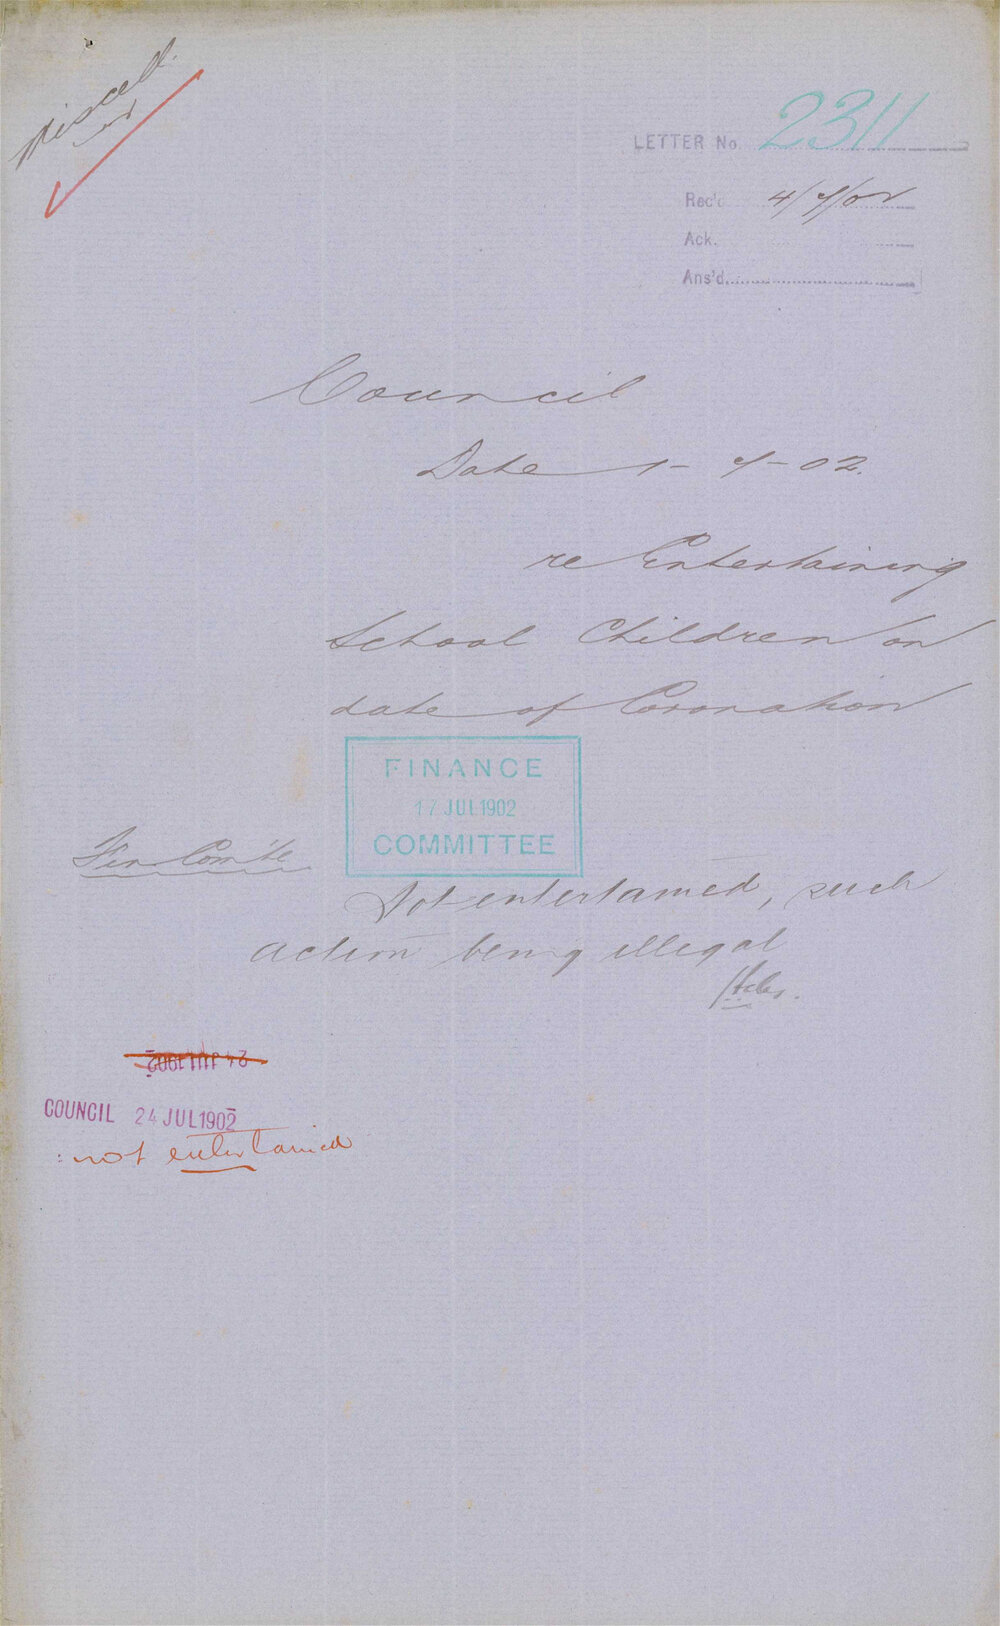 Miscell.
LETTER No. 2311
Rec'd 4/7/02
Ack.
Ans'd.
Council
Date 1-7-02.
re Entertaining
School Children on
date of Coronation
FINANCE
17 JUL 1902
COMMITTEE
Fin Com'te
Not entertained, such
action being illegal
24 JUL 1902
COUNCIL 24 JUL 1902
not entertained